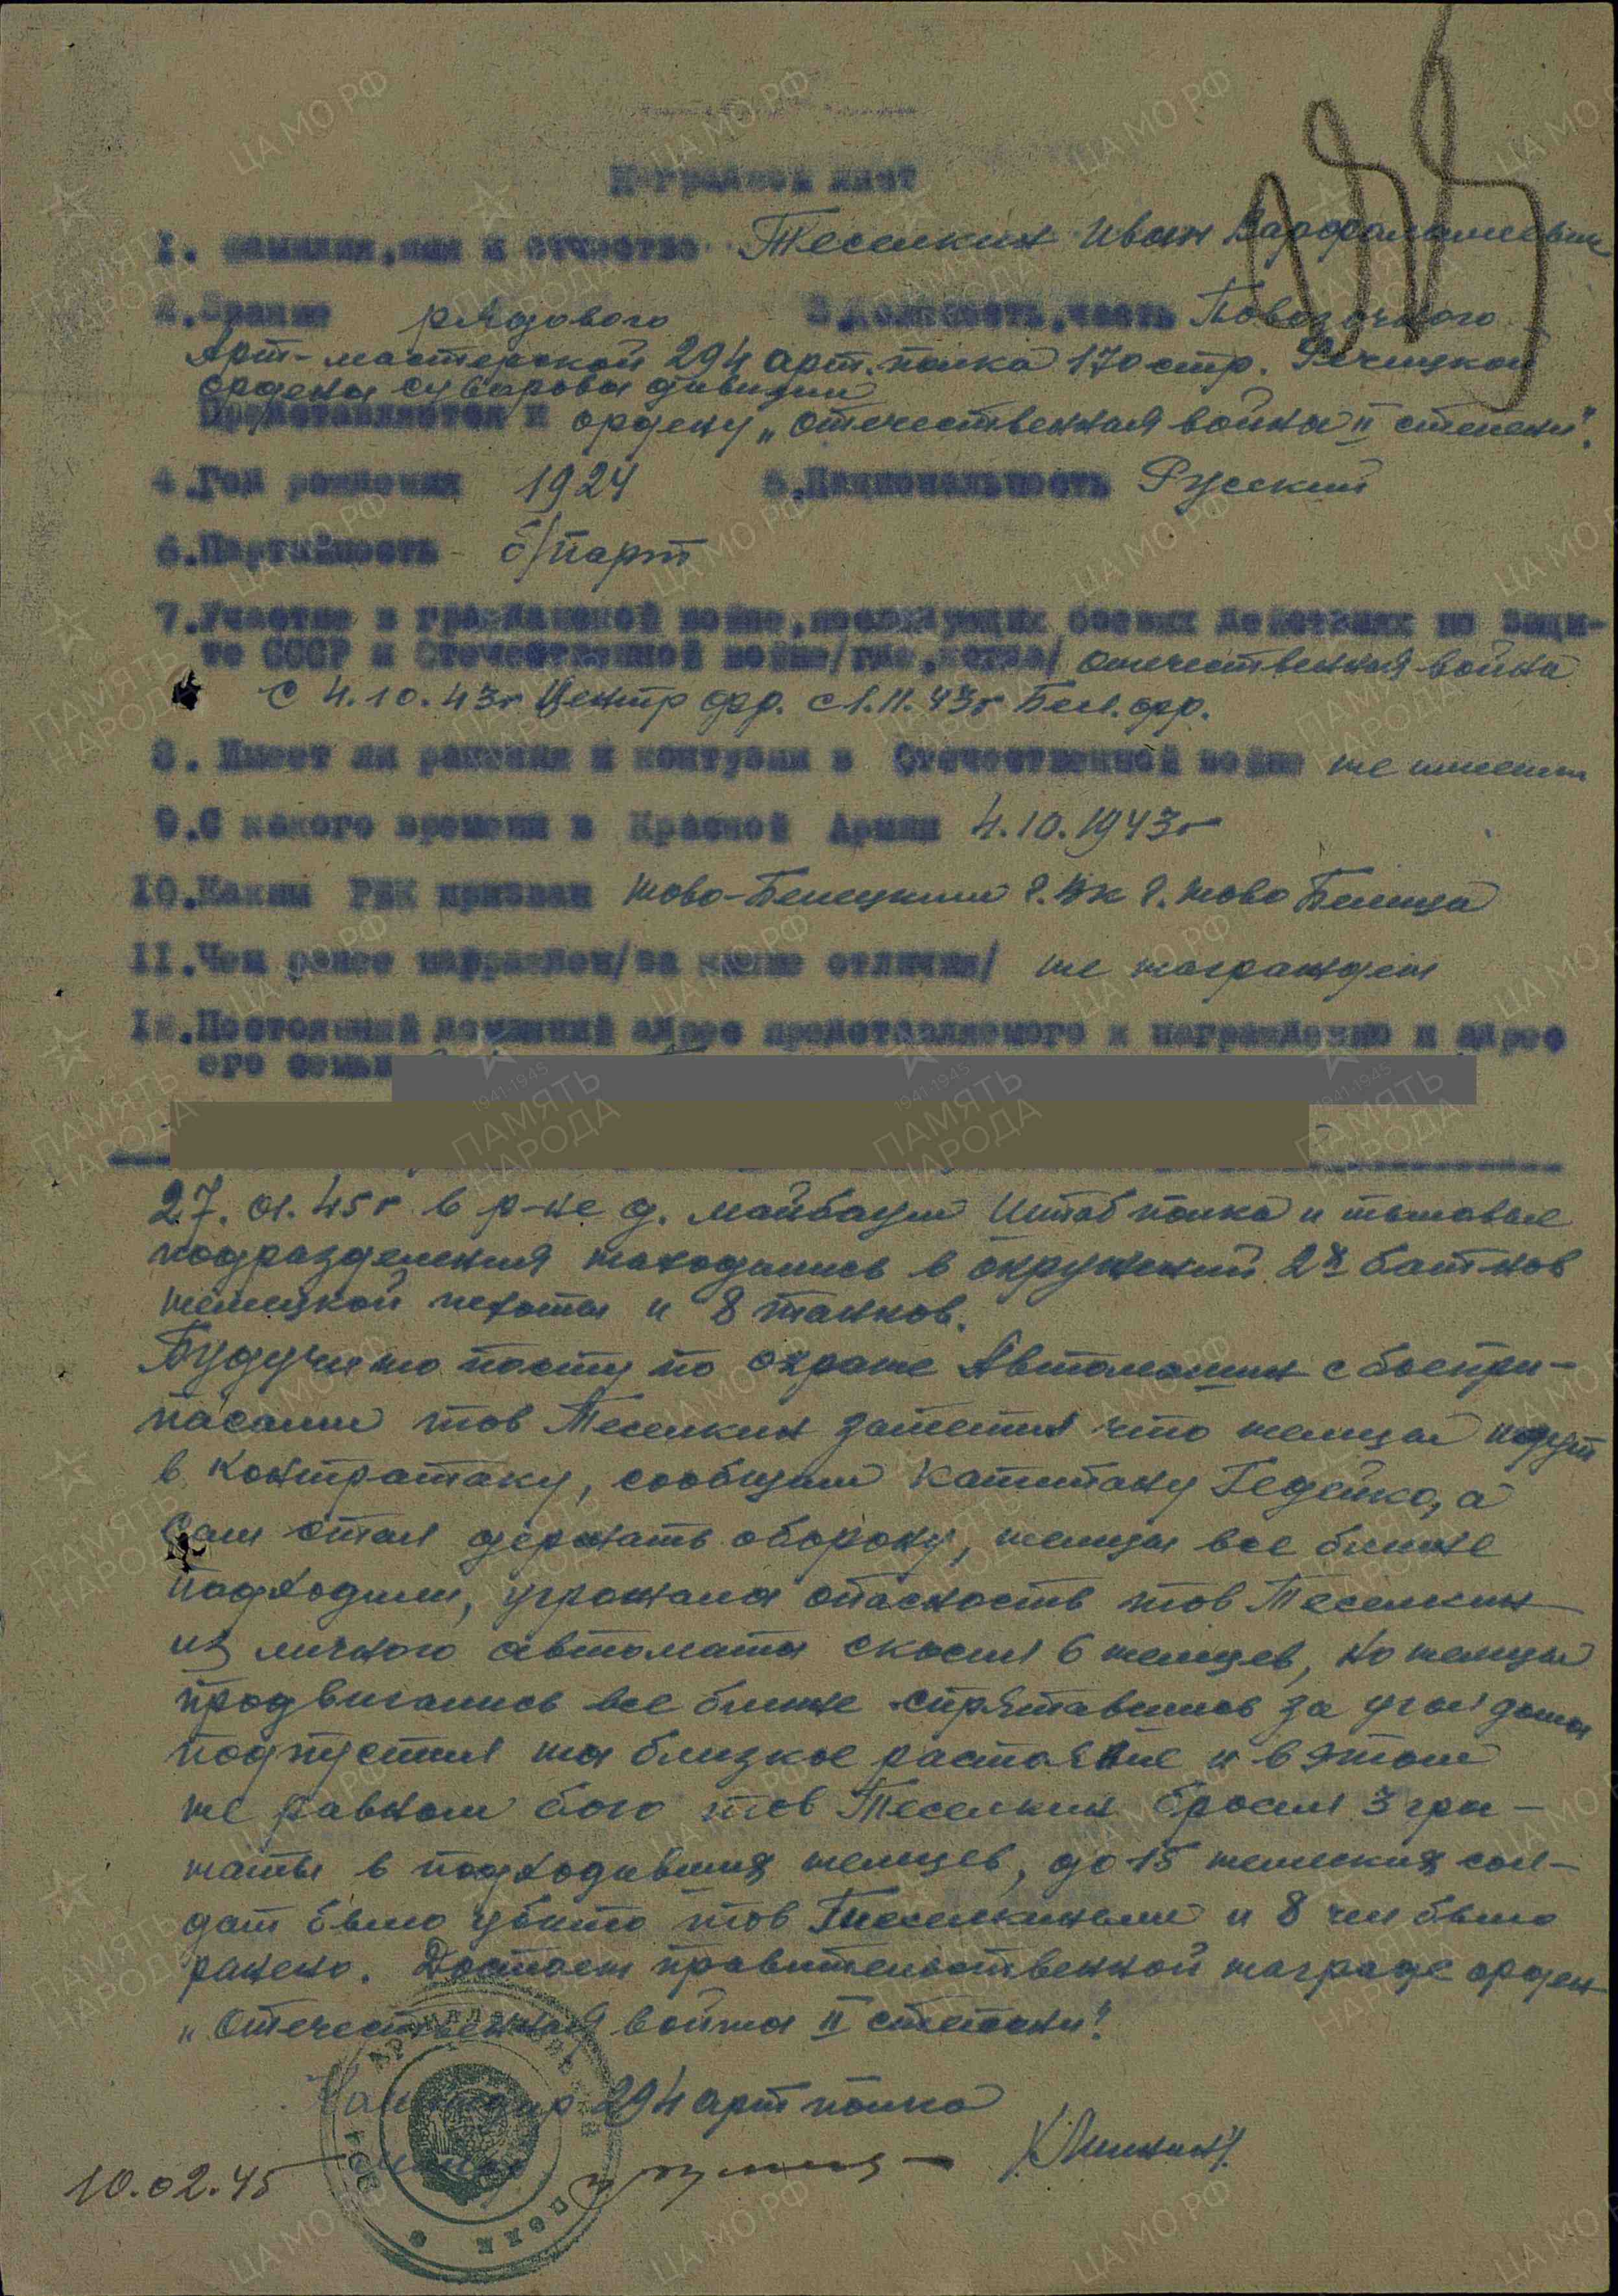 Наградной лист
I. Фамилия, имя и отчество Теселкин Иван Варфоламеевич
2. Звание рядового 3. Должность, часть Повозочного
Арт-мастерской 294 арт. полка 170 стр. Речицкой
ордена суворова дивизии
Представляется к ордену „Отечественная война II степени".
4. Год рождения 1924 5. Национальность Русский
6. Партийность б/парт
7. Участие в гражданской войне, последующих боевых действиях по защи-
те СССР и Отечественной войне/где, когда/ отечественная война
с 4.10.43г Центр фр. с 1.11.43г Бел. фр.
8. Имеет ли ранения и контузии в Отечественной войне не имеет
9. С какого времени в Красной Армии 4.10.1943г
10. Каким РВК призван Ново-Белецким г. Ново Белица
11. Чем ранее награжден/за какие отличия/ не награжден
12. Постоянный домашний адрес представляемого к награждению и адрес
его семьи
27.01.45г в р-не д. майбаум Штаб полка и тыловые
подразделения находились в окружений 2х батнов
немецкой пехоты и 8 танков.
Будучи на посту по охране Автомашин с боепри-
пасами тов Теселкин заметил что немцы идут
в контратаку, сообщил капитану Гедейко, а
сам стал держать оборону, немцы все ближе
подходили, угрожала опасность тов Теселкин
из личного автомата скосил 6 немцев, но немцы
продвигались все ближе спрятавшись за угол дома
подпустил на близкое растояние и в этом
не равном бою тов Теселкин бросил 3 гра-
наты в подходивших немцев, до 15 немецких сол-
дат было убито тов Теселкиным и 8 чел было
ранено. Достоин правительственной награде орден
„Отечественная война II степени".
Командир 294 арт полка
10.02.45
ЦА МО РФ
ПАМЯТЬ НАРОДА
1941-1945